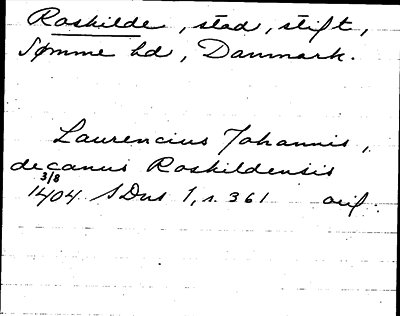 Roskilde, stad, stift,
Sømme hd, Danmark.
Laurencius Johannis,
decanus Roskildensis
3/8
1404 SDns 1, s. 361 orig.